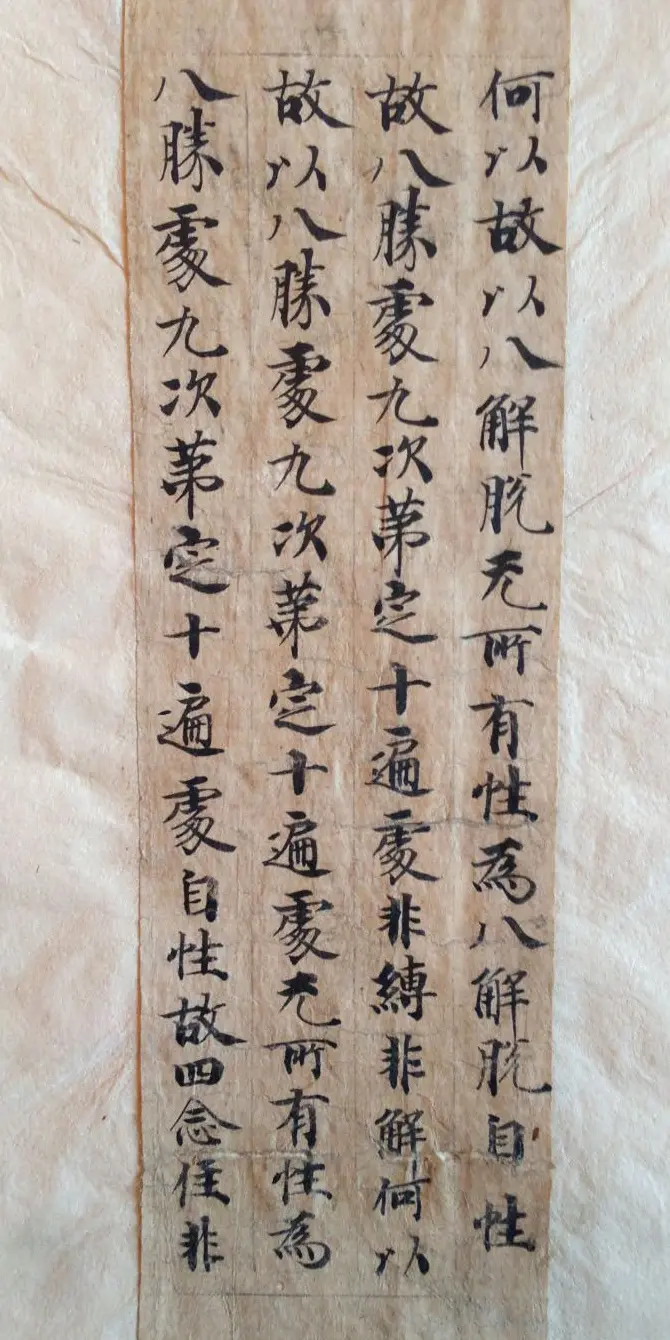 何以故以八解脱无所有性為八解脱自性
故八勝處九次第定十遍處非縛非解何以
故以八勝處九次第定十遍處无所有性為
八勝處九次第定十遍處自性故四念住非